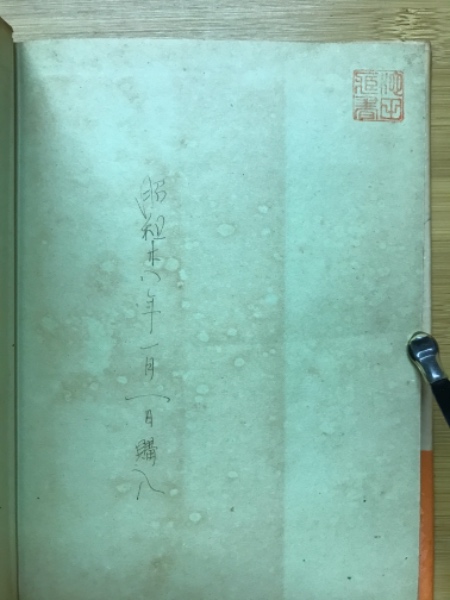 藏書
昭和十八年一月一日購入